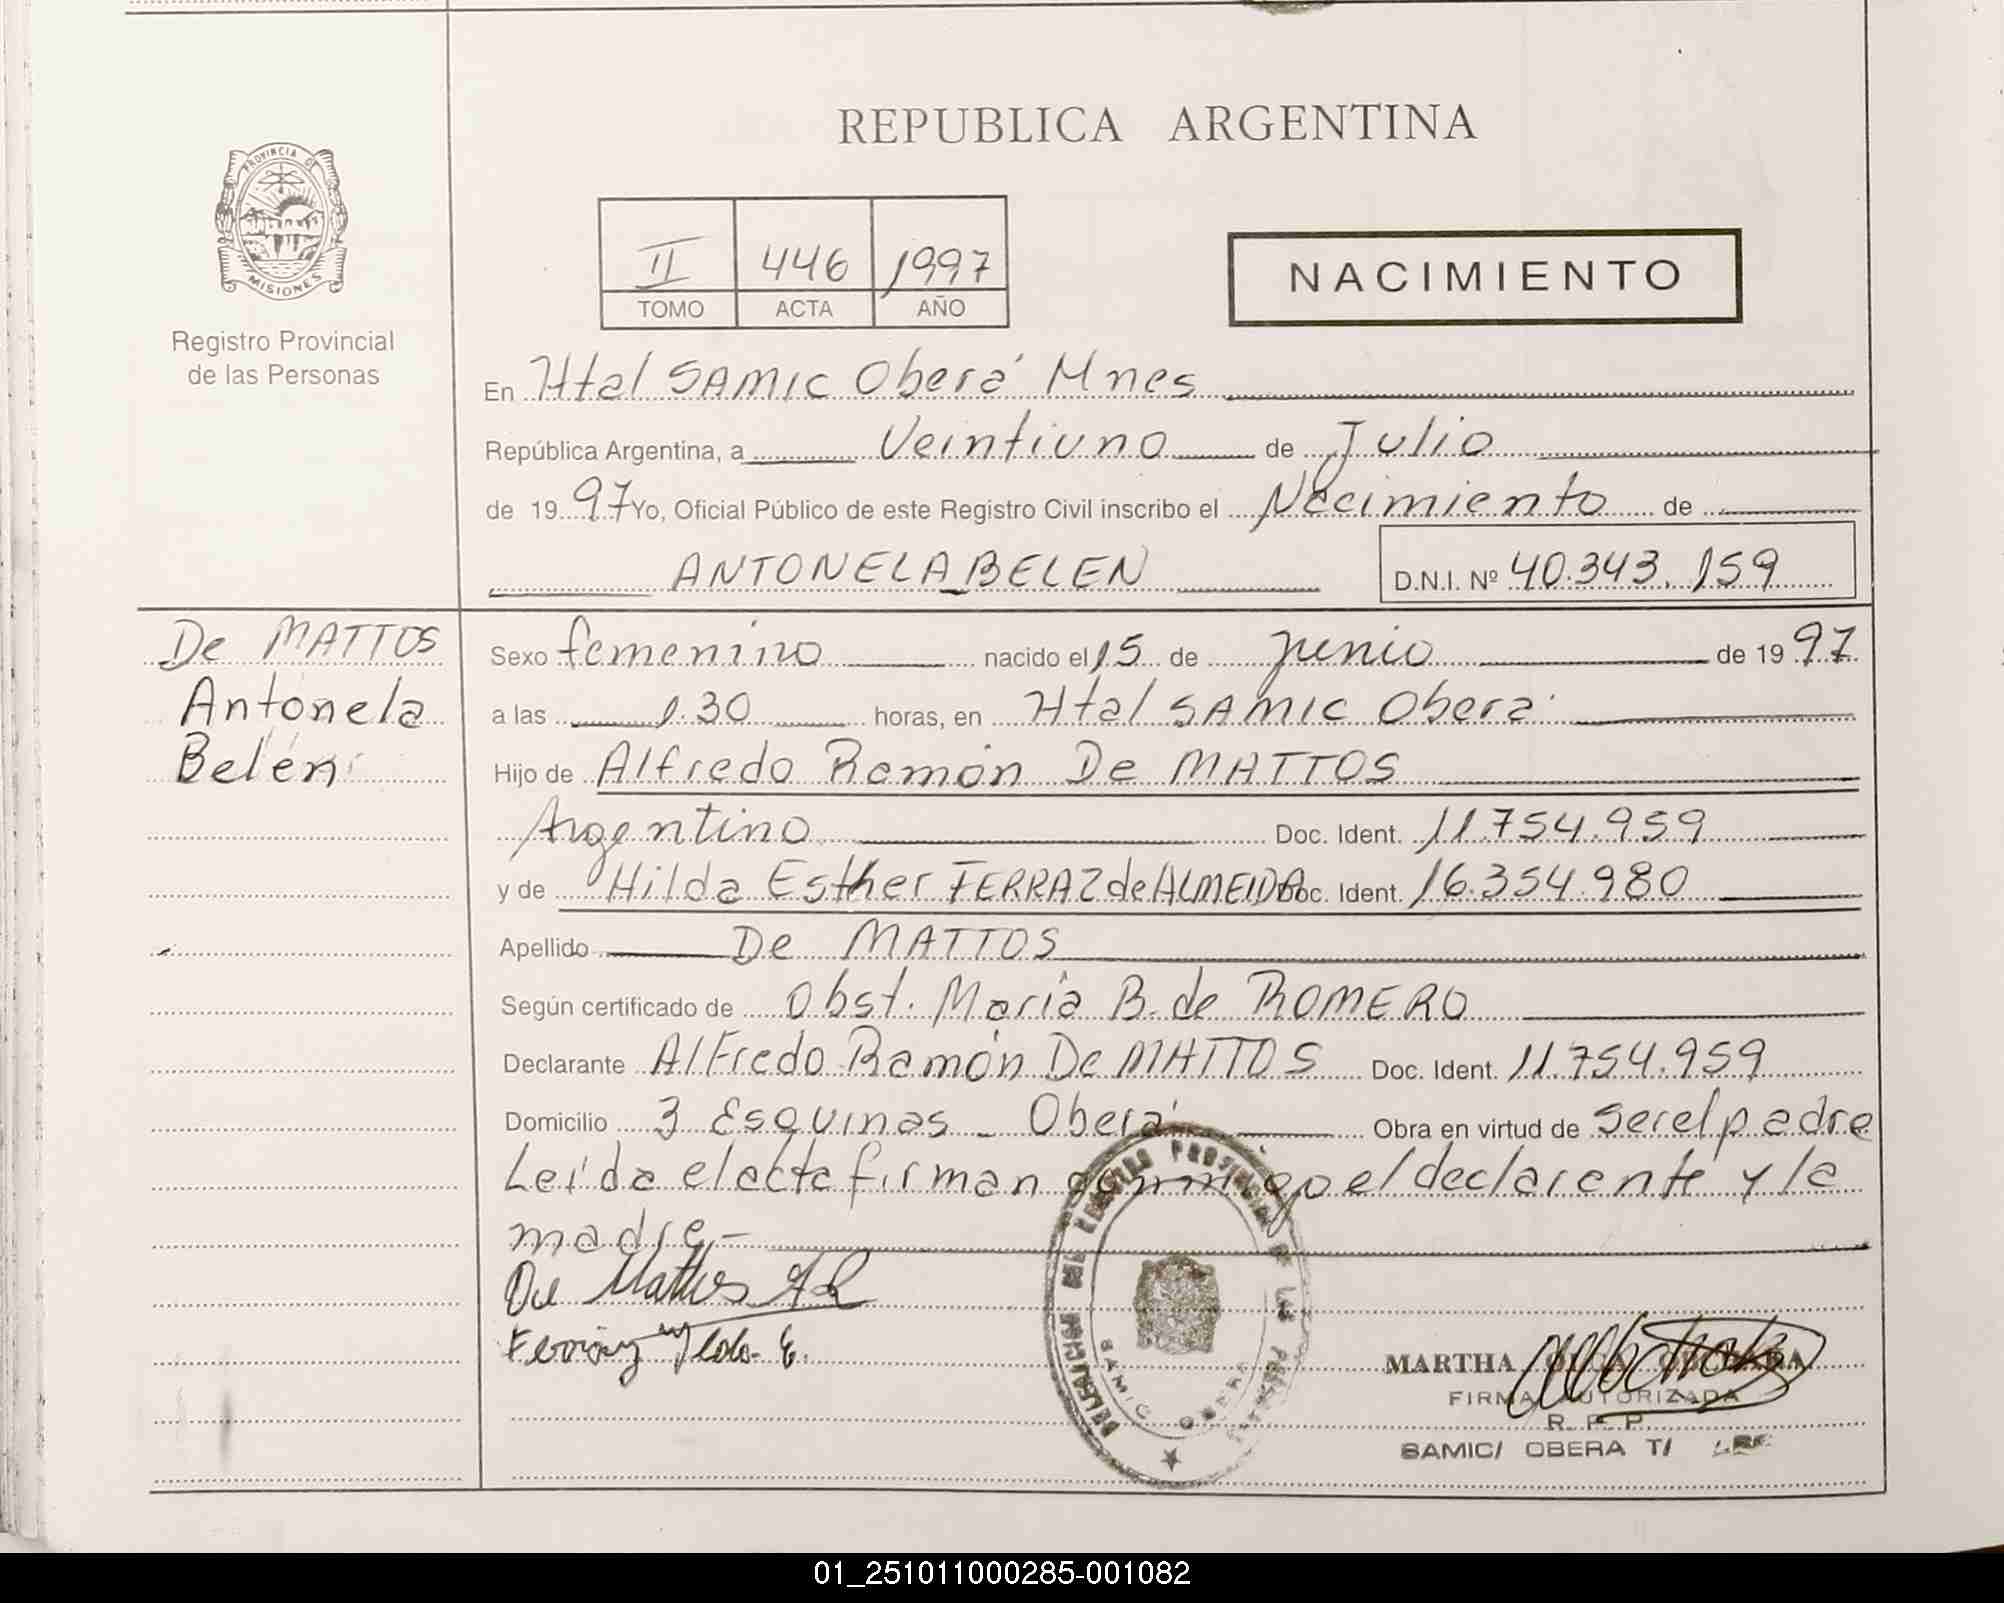 REPUBLICA ARGENTINA
PROVINCIA DE
MISIONES
Registro Provincial
de las Personas
II 446 1997
TOMO ACTA AÑO
NACIMIENTO
En Htal SAMIC Oberá Mnes
República Argentina, a Veintiuno de Julio
de 1997 Yo, Oficial Público de este Registro Civil inscribo el Nacimiento de
ANTONELA BELEN D.N.I. Nº 40.343.159
De MATTOS
Antonela
Belén
Sexo femenino nacido el 15 de junio de 1997
a las 1.30 horas, en Htal SAMIC Oberá
Hijo de Alfredo Ramón De MATTOS
Argentino Doc. Ident. 11.754.959
y de Hilda Esther FERRAZ de ALMEIDA Doc. Ident. 16.354.980
Apellido De MATTOS
Según certificado de Obst. María B. de ROMERO
Declarante Alfredo Ramón De MATTOS Doc. Ident. 11.754.959
Domicilio 3 Esquinas - Oberá Obra en virtud de ser el padre
Leída el acta firman conmigo el declarante y la
madre.-
De Mattos A R
DEL REGISTRO PROVINCIAL DE LAS
SAMIC OBERA
MARTHA
FIRMA AUTORIZADA
R. P. P.
SAMIC/ OBERA
01_251011000285-001082